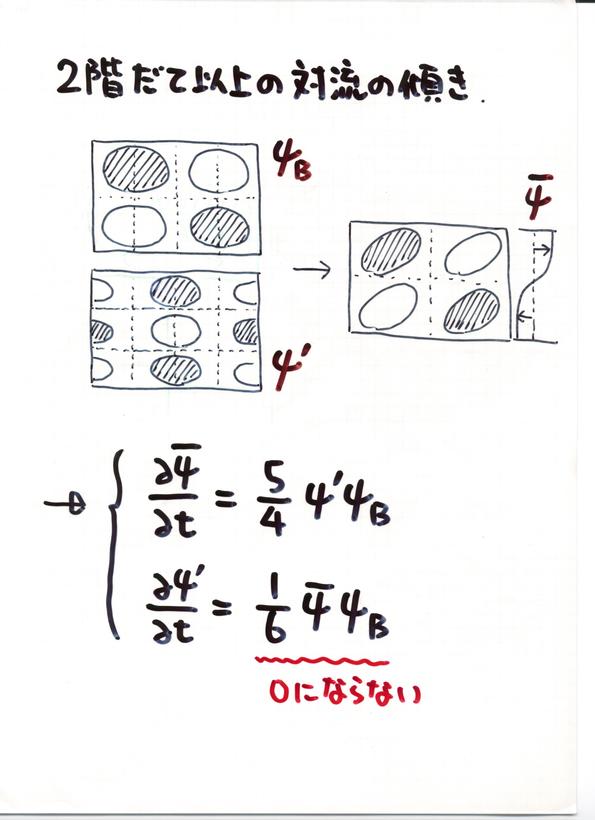 2階だて以上の対流の傾き.
ψB
ψ̅
ψ'
∂ψ̅/∂t = 5/4 ψ'ψB
∂ψ'/∂t = 1/6 ψ̅ψB
0にならない